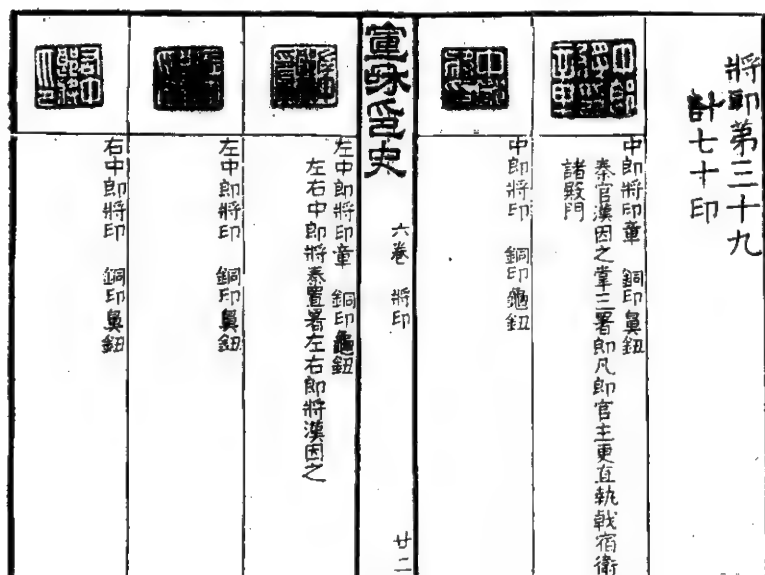 將印第三十九
計七十印
中郎將印章 銅印鼻鈕
秦官漢因之掌三署郎凡郎官主更直執戟宿衛
諸殿門
中郎將印 銅印龜鈕
六卷 將印
廿二
左中郎將印章 銅印龜鈕
左右中郎將秦置署左右郎將漢因之
左中郎將印 銅印鼻鈕
右中郎將印 銅印鼻鈕